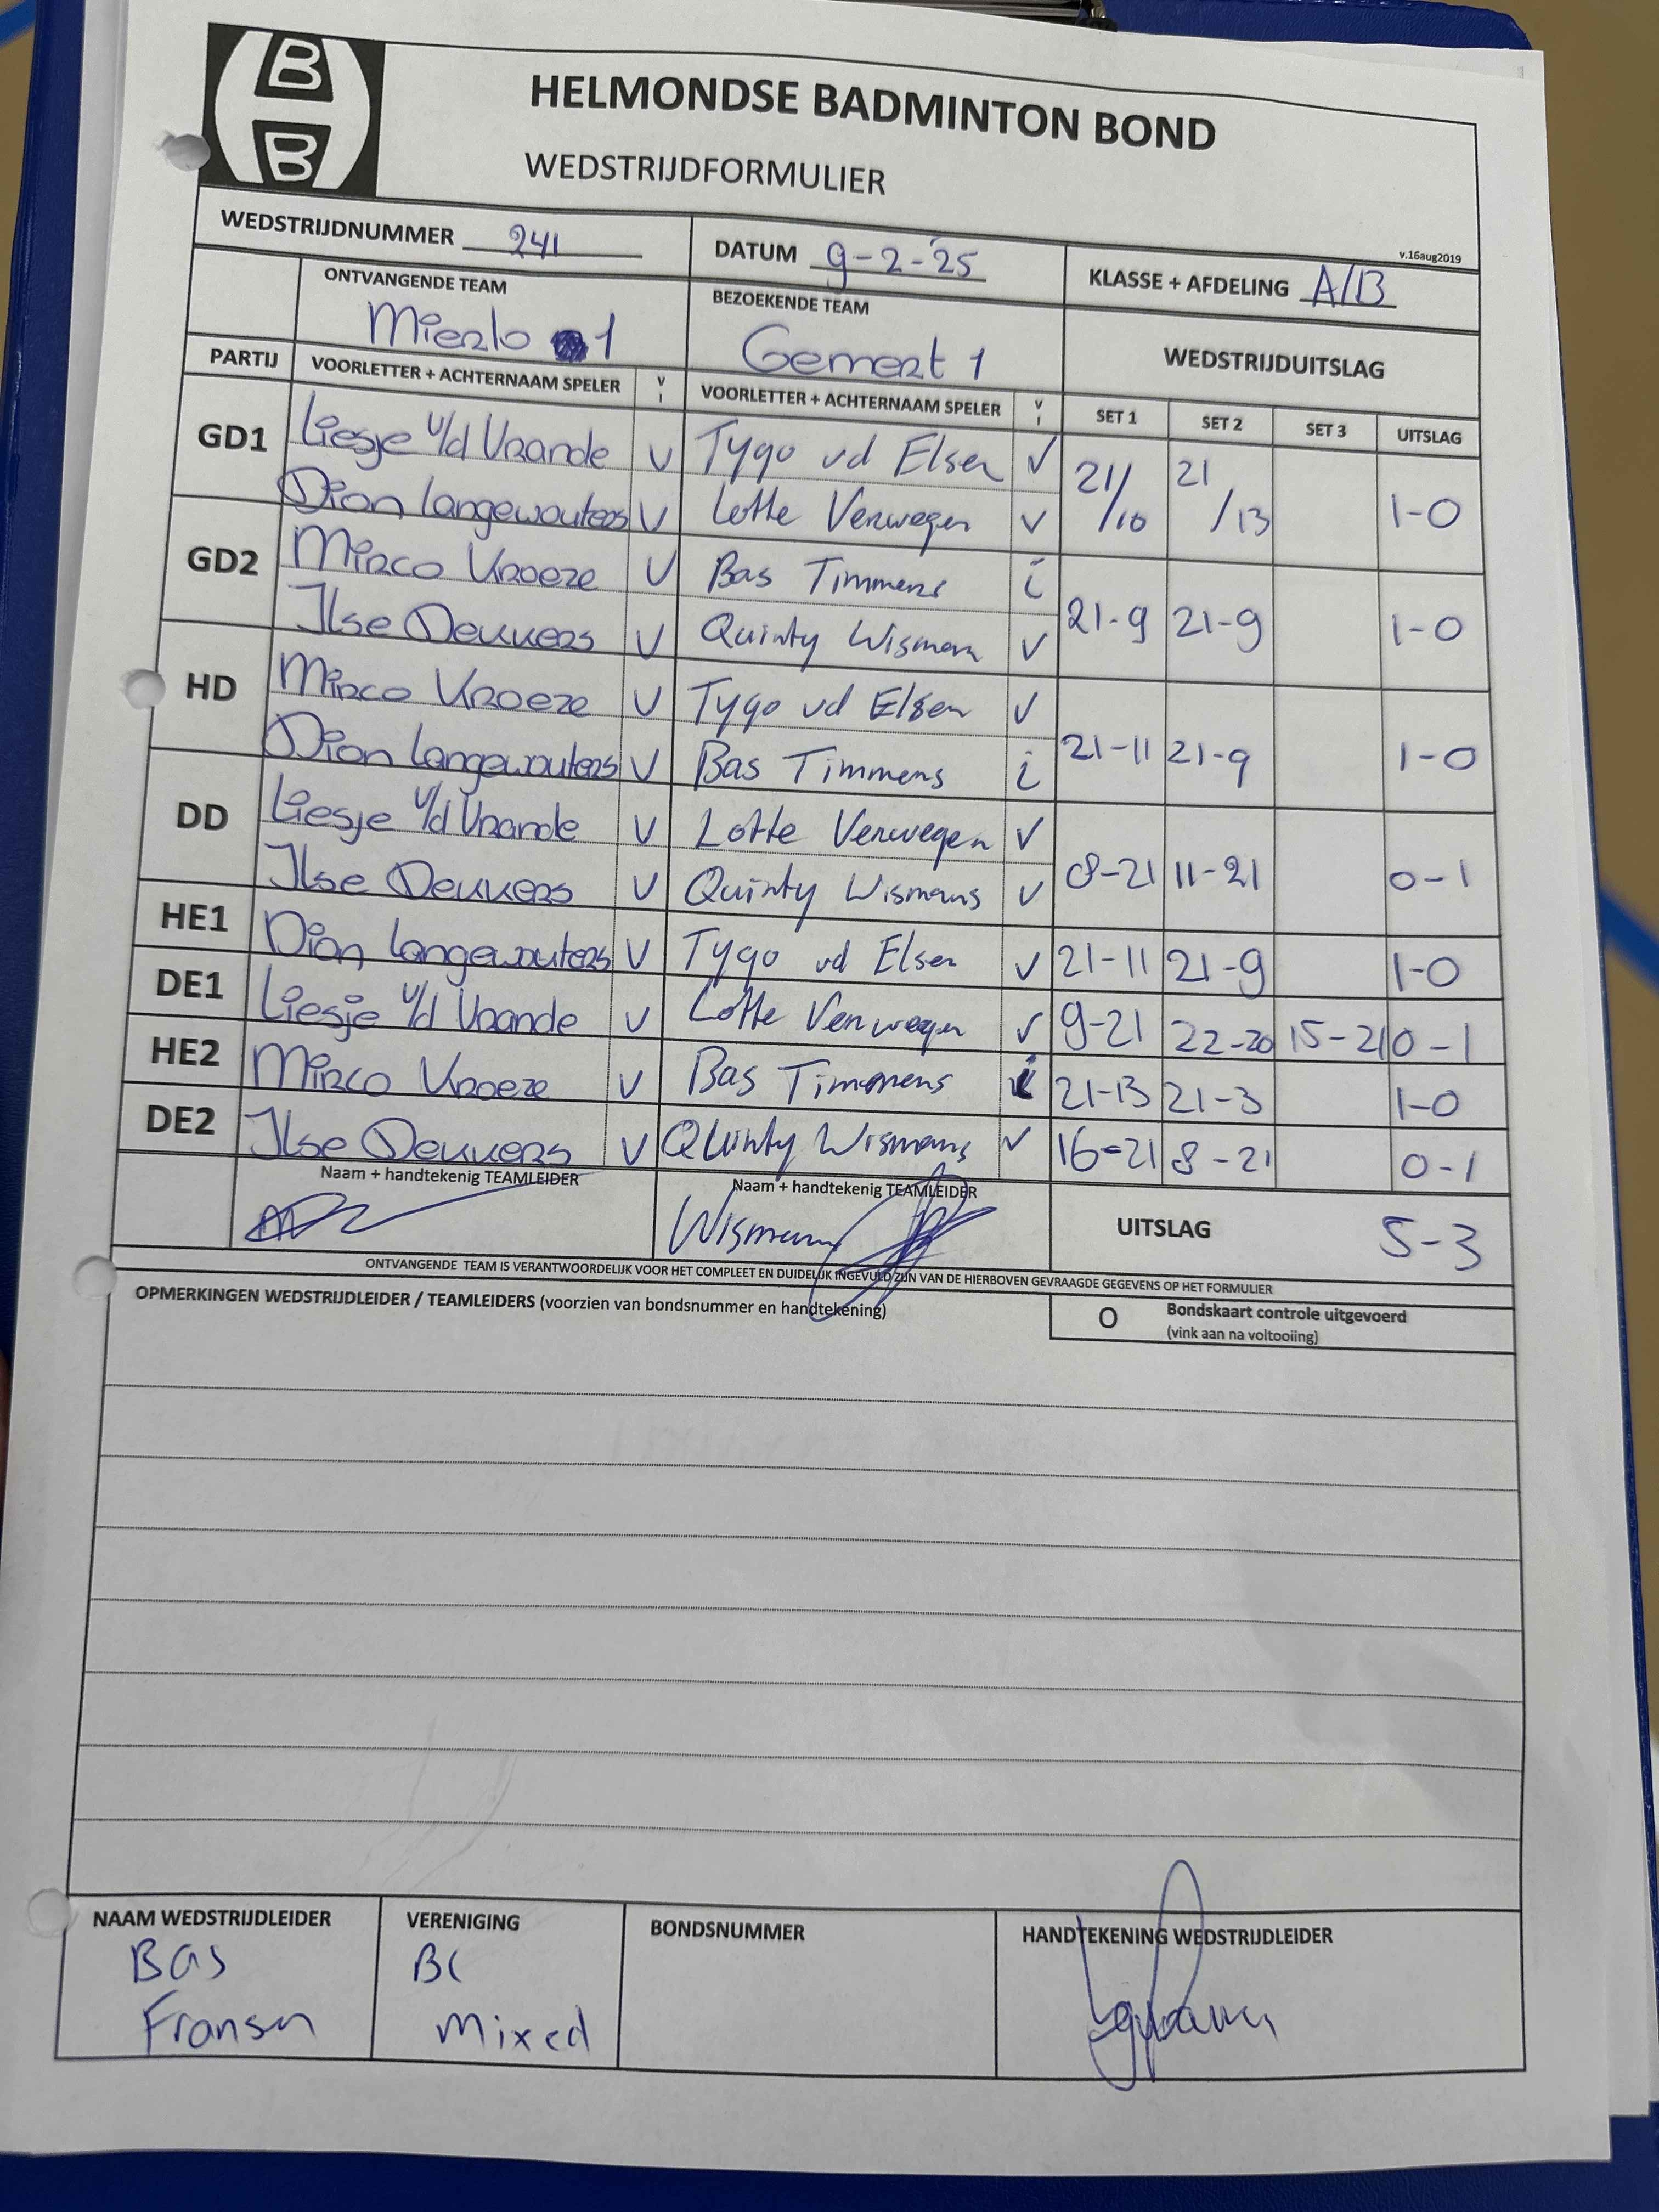 HELMONDSE BADMINTON BOND
WEDSTRIJDFORMULIER
v.16aug2019
WEDSTRIJDNUMMER 241 DATUM 9-2-25 KLASSE + AFDELING A/B
ONTVANGENDE TEAM BEZOEKENDE TEAM WEDSTRIJDUITSLAG
Mierlo 1 Gemert 1
PARTIJ VOORLETTER + ACHTERNAAM SPELER V I VOORLETTER + ACHTERNAAM SPELER V I SET 1 SET 2 SET 3 UITSLAG
GD1 Liesje v/d Vrande V Tygo vd Elsen V 21/10 21/13 1-0
Dion Langewouters V Lotte Verwegen V
GD2 Mirco Vroeze V Bas Timmens i 21-9 21-9 1-0
Ilse Deuvers V Quinty Wismans V
HD Mirco Vroeze V Tygo vd Elsen V 21-11 21-9 1-0
Dion Langewouters V Bas Timmens i
DD Liesje v/d Vrande V Lotte Verwegen V 8-21 11-21 0-1
Ilse Deuvers V Quinty Wismans V
HE1 Dion Langewouters V Tygo vd Elsen V 21-11 21-9 1-0
DE1 Liesje v/d Vrande V Lotte Verwegen V 9-21 22-20 15-21 0-1
HE2 Mirco Vroeze V Bas Timmens i 21-13 21-3 1-0
DE2 Ilse Deuvers V Quinty Wismans V 16-21 8-21 0-1
Naam + handtekenig TEAMLEIDER Naam + handtekenig TEAMLEIDER
Wismans UITSLAG 5-3
ONTVANGENDE TEAM IS VERANTWOORDELIJK VOOR HET COMPLEET EN DUIDELIJK INGEVULD ZIJN VAN DE HIERBOVEN GEVRAAGDE GEGEVENS OP HET FORMULIER
OPMERKINGEN WEDSTRIJDLEIDER / TEAMLEIDERS (voorzien van bondsnummer en handtekening)
O Bondskaart controle uitgevoerd
(vink aan na voltooiing)
NAAM WEDSTRIJDLEIDER VERENIGING BONDSNUMMER HANDTEKENING WEDSTRIJDLEIDER
Bas BC
Fransen Mixed